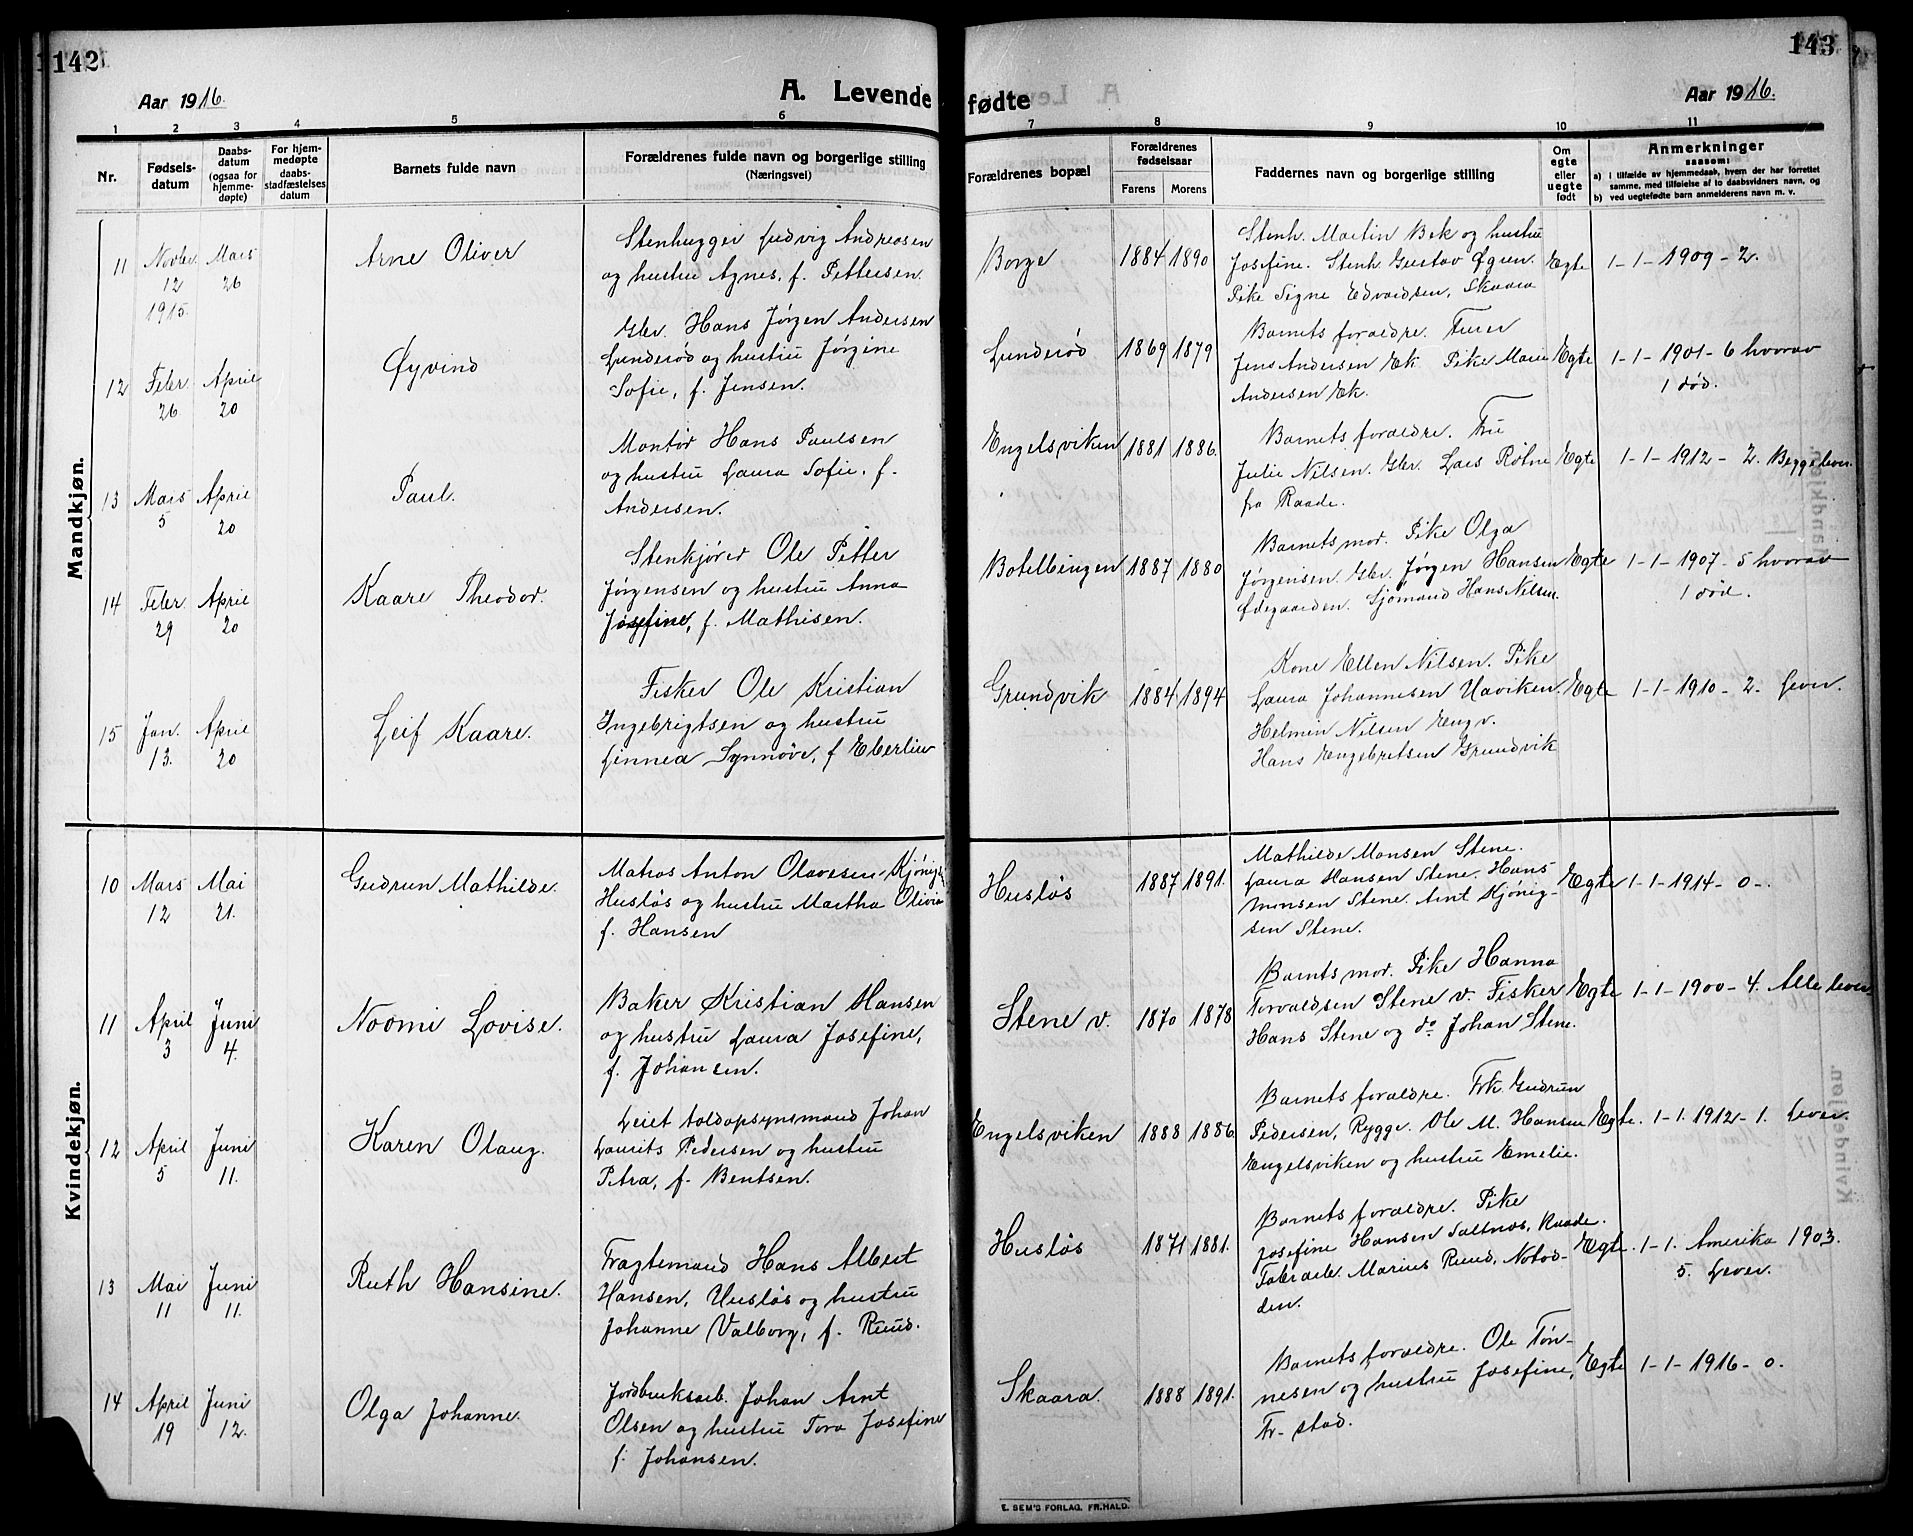 142
Aar 1916.
A. Levende
1 2 3 4 5 6
Nr.
Fødsels-
datum
Daabs-
datum
(ogsaa for
hjemme-
døpte)
For hjem-
medøpte
daabs-
stadfæstelses
datum
Barnets fulde navn
Forældrenes fulde navn og borgerlige stilling
(Næringsvei)
Mandkjøn.
11 Novbr. 12 1915. Mars 26
Arne Oliver
Stenhugger Ludvig Andreasen
og hustru Agnes, f. Pettersen.
12 Febr. 26. April 20
Øyvind
Gbr. Hans Jørgen Andersen
Lunderød og hustru Jørgine
Sofie, f. Jensen.
13 Mars 5 April 20
Paul.
Montør Hans Paulsen
og hustru Laura Sofie, f.
Andersen.
14 Febr. 29 April 20
Kaare Theodor.
Stenkjører Ole Petter
Jørgensen og hustru Anna
Josefine, f. Mathisen.
15 Jan. 13. April 20
Leif Kaare.
Fisker Ole Kristian
Ingebrigtsen og hustru
Linnea Synnøve, f Eberlin
Kvindekjøn.
10 Mars 12 Mai 21.
Gudrun Mathilde.
Matros Anton Olavesen
Husløs og hustru Martha Olivia
f. Hansen
11 April 3 Juni 4.
Noomi Lovise.
Baker Kristian Hansen
og hustru Laura Josefine,
f. Johansen.
12 April 5 Juni 11.
Karen Olaug.
Leiet toldopsynsmand Johan
Laurits Pedersen og hustru
Petra, f. Bentsen.
13 Mai 11 Juni 11.
Ruth Hansine.
Fragtemand Hans Albert
Hansen, Husløs og hustru
Johanne Valborg, f. Ruud.
14 April 19 Juni 12.
Olga Johanne.
Jordbruksarb. Johan Arnt
Olsen og hustru Tora Josefine
f. Johansen.
143
fødte
Aar 1916.
7 8 9 10 11
Forældrenes bopæl
Forældrenes
fødselsaar
Farens Morens
Faddernes navn og borgerlige stilling
Om
egte
eller
uegte
født
Anmerkninger
saasom:
a) i tilfælde av hjemmedaab, hvem der har forrettet
samme, med tilføielse af to daabsvidners navn, og
b) ved uegtefødte barn anmelderens navn m. v.
Borge 1884 1890
Stenh. Martin Bek og hustru
Josefine. Stenh. Gustav Øgren.
Pike Signe Edvardsen, Skaara
Egte 1-1-1909-2.
Lunderød 1869 1879
Barnets forældre.
Jens Andersen Ek Pike Marie
Andersen Ek.
Egte 1-1-1901-6 hvorav
1 død.
Engelsviken 1881 1886.
Barnets forældre. Fru
Julie Nilsen. Gbr. Lars Rølne
fra Raade.
Egte 1-1-1912-2. Begge lever.
Botelbingen 1887 1880
Barnets mor. Pike Olga
Jørgensen. Gbr. Jørgen Hansen
Ødegaarden. Sjømand Hans Nilsen.
Egte 1-1-1907-5 hvorav
1 død.
Grundvik 1884 1894
Kone Ellen Nilsen. Pike
Laura Johannesen Uaviken.
Helmin Nilsen Engv.
Hans Engebretsen Grundvik
Egte 1-1-1910-2. Lever.
Husløs 1887 1891.
Mathilde Monsen Stene.
Laura Hansen Stene. Hans
Monsen Stene. Arnt Kjønig-
sen Stene.
Egte 1-1-1914-0-.
Stene v. 1870 1878
Barnets mor. Pike Hanna
Torvaldsen Stene v. Fisker
Hans Stene og do. Johan Stene.
Egte 1-1-1900-4. Alle lever.
Engelsviken 1888 1886.
Barnets forældre. Frk. Gudrun
Pedersen, Rygge. Ole M. Hansen
Engelsviken og hustru Emelie.
Egte. 1-1.1912-1. Lever.
Husløs 1871 1881.
Barnets forældre. Pike
Josefine Hansen Saltnes, Raade.
Fabr.arb. Marius Ruud, Notod-
den.
Egte. 1-1. Amerika 1903.
5. Lever.
Skaara. 1888 1891.
Barnets forældre. Ole Tøn-
nesen og hustru Josefine,
Fr-stad.
Egte 1-1-1916-0.
E. SEM'S FORLAG, FR.HALD.